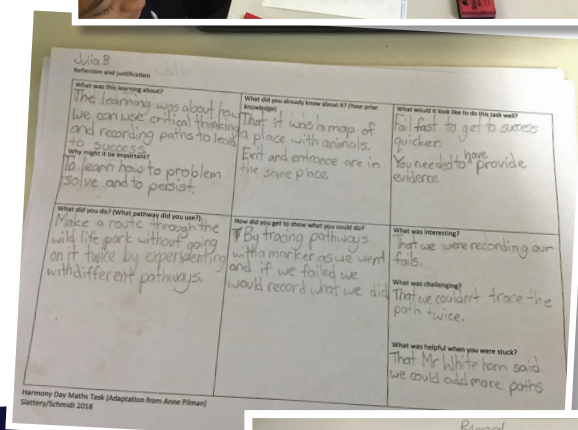 Julia B
Reflection and Justification
What was this learning about?
The learning was about how
we can use critical thinking
and recording paths to lead
to success
Why might it be important?
To learn how to problem
solve and to persist.
What did you already know about it? (Your prior
knowledge)
That it was a map of
a place with animals.
Exit and entrance are in
the same place
What would it look like to do this task well?
Fail fast to get to success
quicker.
You needed to have provide
evidence
What did you do? (What pathway did you use?)
Make a route through the
wild life park without going
on it twice by experimenting
with different pathways.
How did you get to show what you could do?
By tracing pathways
with a marker as we went
and if we failed we
would record what we did
What was interesting?
That we were recording our
fails.
What was challenging?
That we couldn't trace the
path twice.
What was helpful when you were stuck?
That Mr Whitehorn said
we could add more paths
Harmony Day Maths Task (Adaptation from Anne Pilman)
Slattery/Schmidt 2018